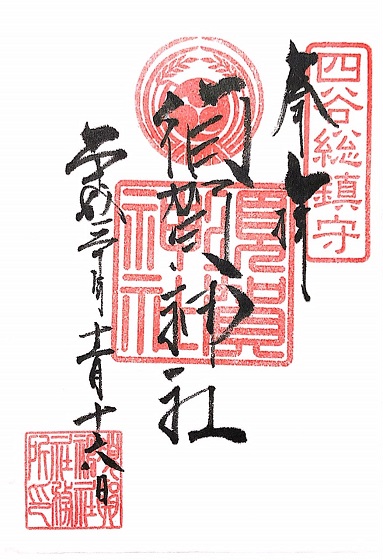 四谷総鎮守
奉拝
須賀神社
須賀神社
令和三年 十六日
須賀神社社務所印